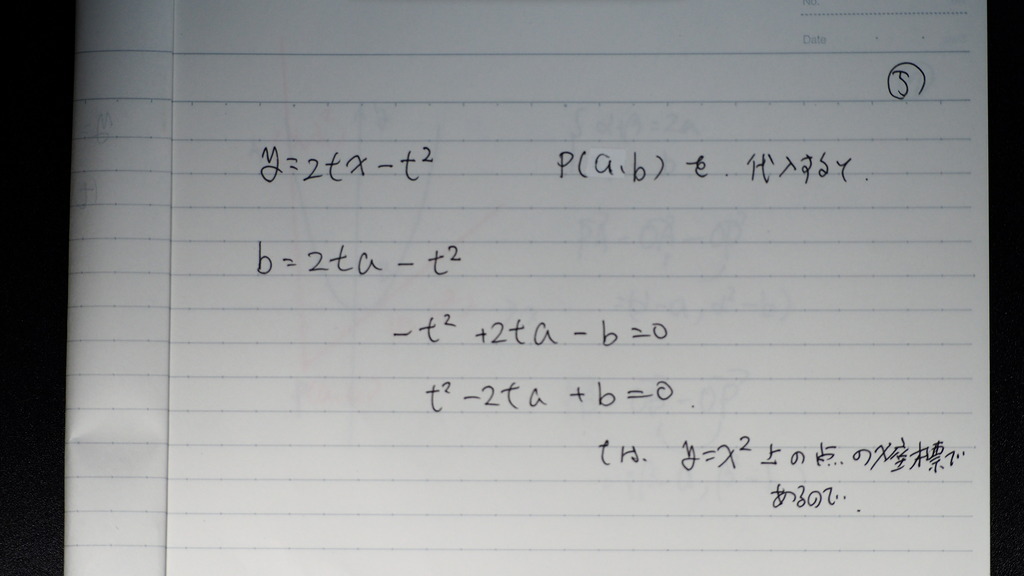 No.
Date
⑤
y=2tx-t² P(a,b) を 代入すると.
b=2ta-t²
-t²+2ta-b=0
t²-2ta+b=0.
tは. y=x²上の点のx座標で
あるので.